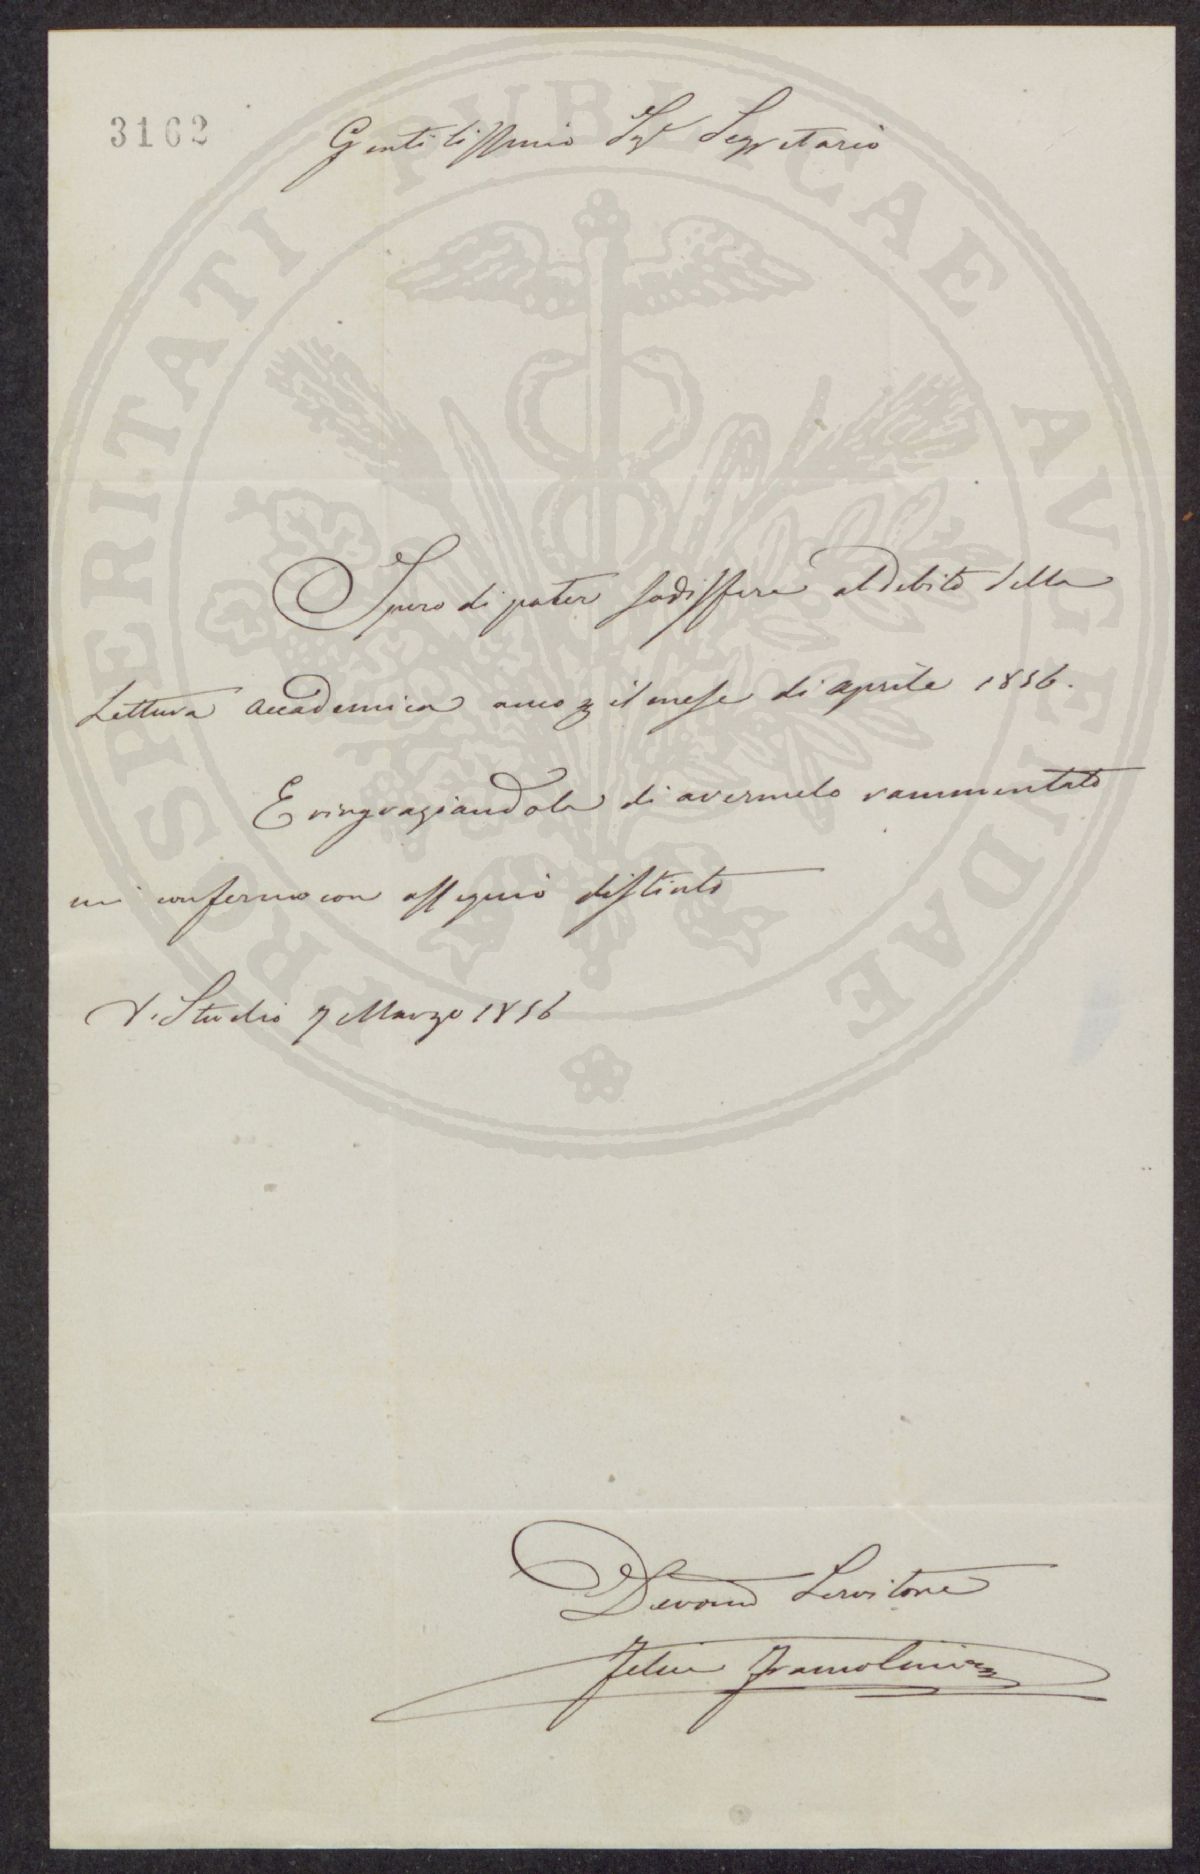 3162
Gentilissimo Sigr Segretario
PROSPERITATI PUBLICAE AUGENDAE
Spero di poter sodisfare al debito della
Lettura accademica il mese di aprile 1856.
E ringraziandola di avermelo rammentato
mi confermo con ossequio distinto
Studio 7 Marzo 1856
Devomo Servitore
Felice Francolini